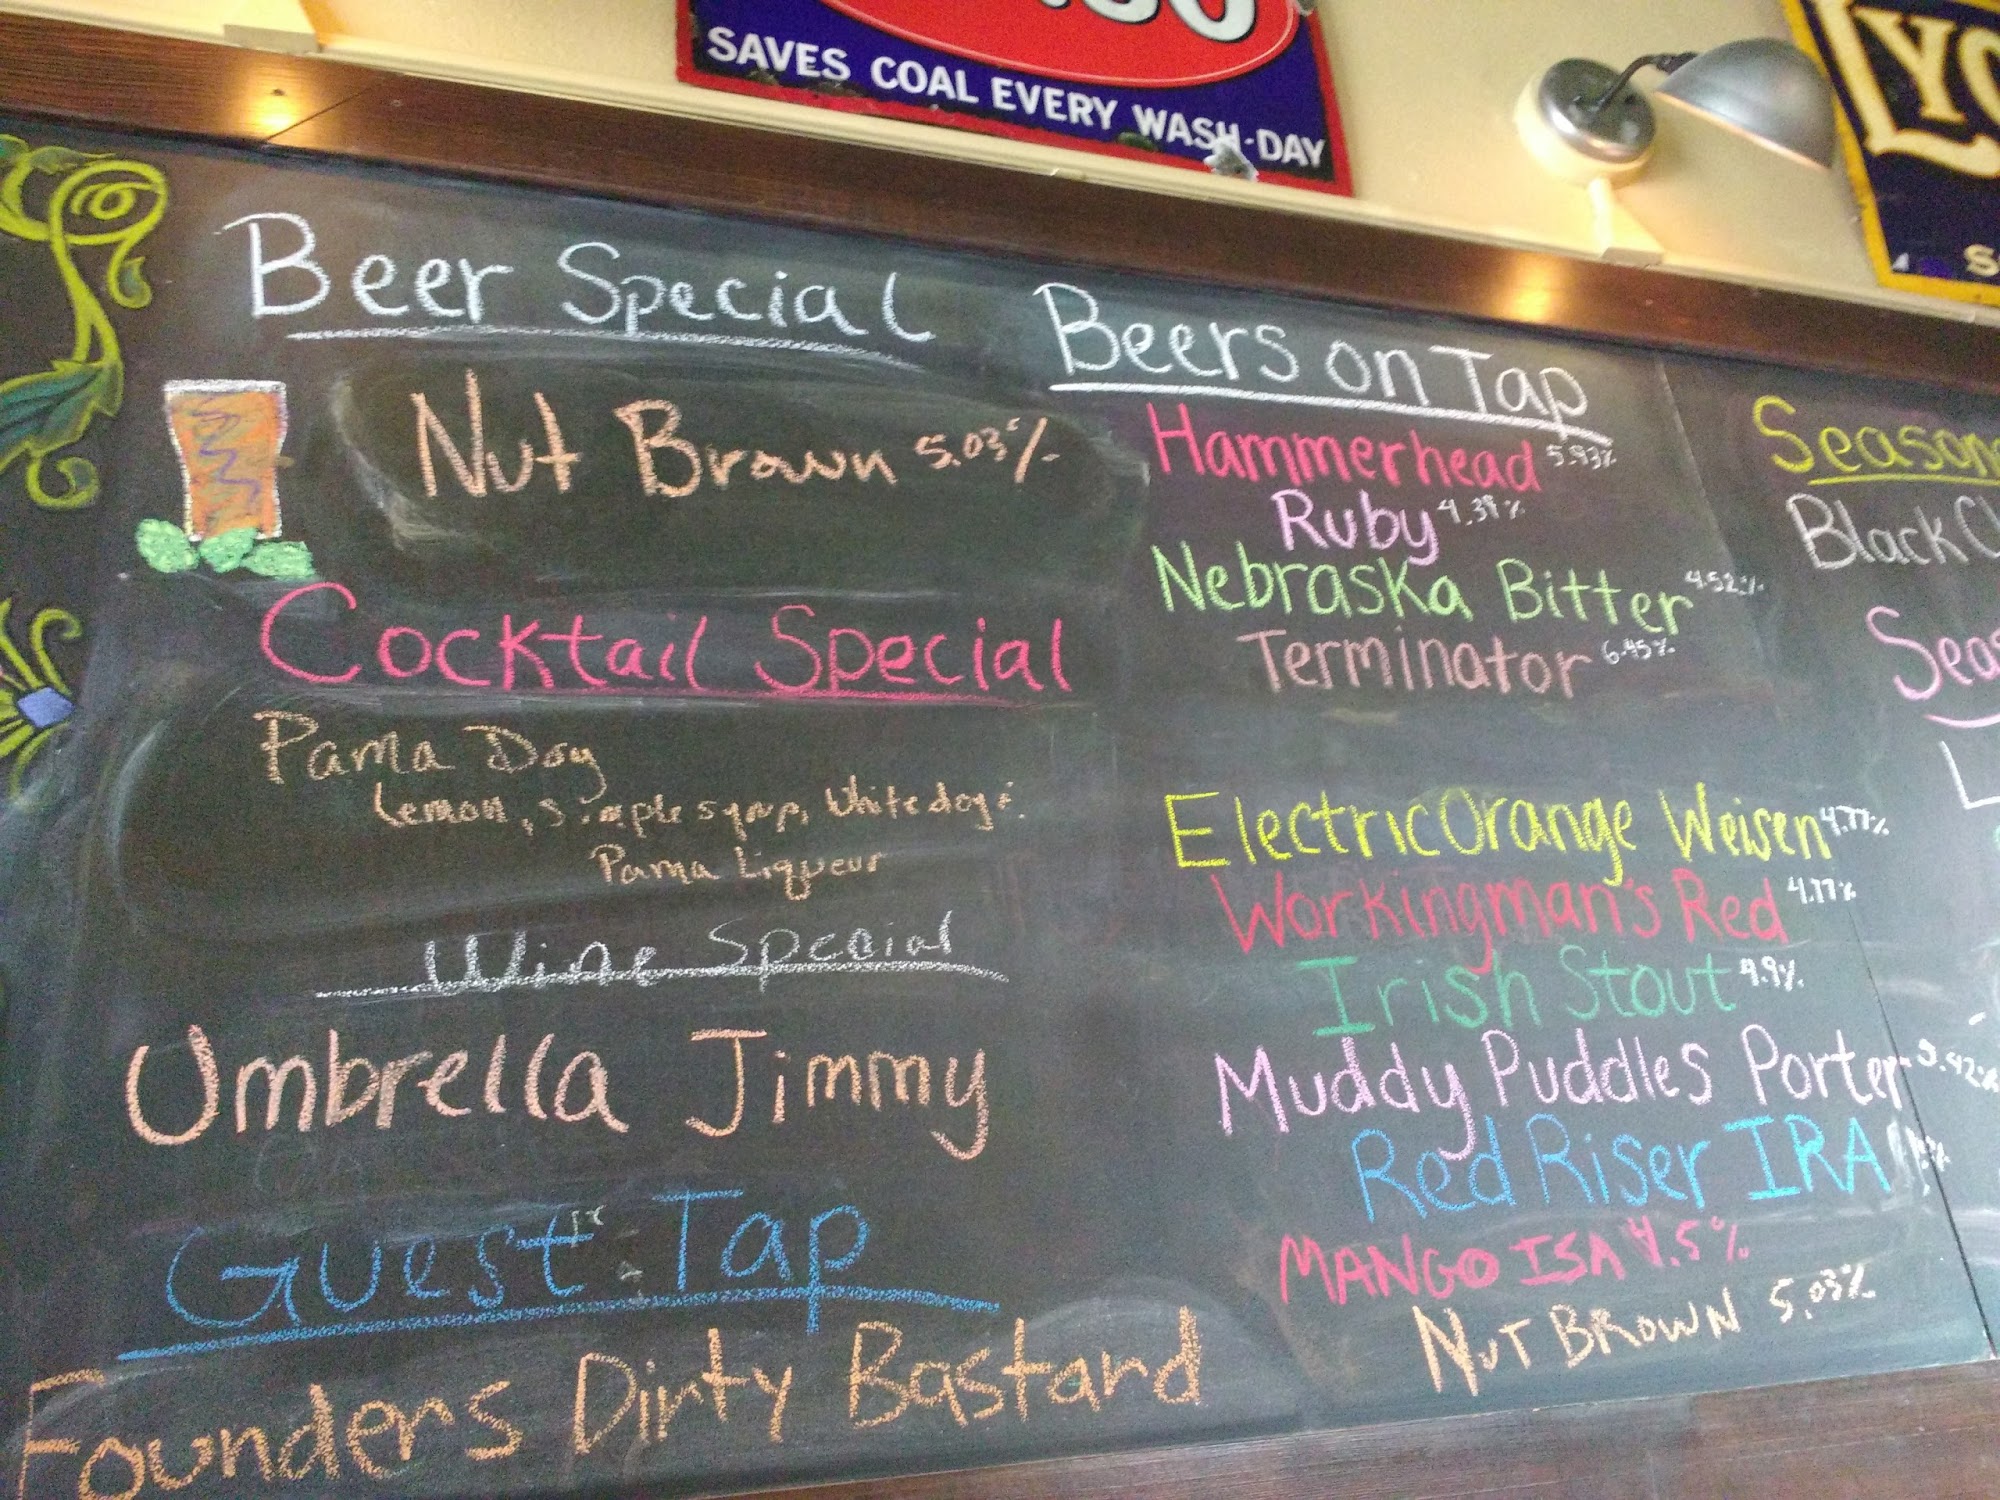 SAVES COAL EVERY WASH-DAY
Beer Special
Nut Brown 5.03%
Cocktail Special
Pama Dog
Lemon, simple syrup, White dog &
Pama Liqueur
Wine Special
Umbrella Jimmy
Guest Tap
Founders Dirty Bastard
Beers on Tap
Hammerhead 5.93%
Ruby 4.39%
Nebraska Bitter 4.52%
Terminator 6.45%
Electric Orange Weisen 4.77%
Workingman's Red 4.77%
Irish Stout 4.9%
Muddy Puddles Porter 5.42%
Red Riser IRA
MANGO ISA 4.5%
NUT BROWN 5.03%
Season
Black C
Seas